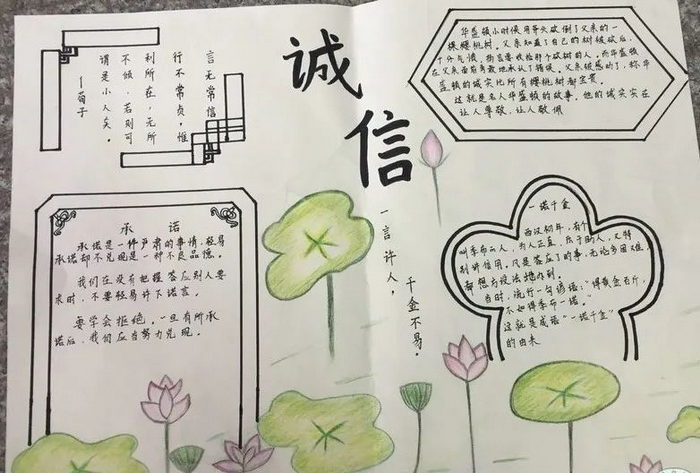 言无常信
行不常贞，惟
利所在，无所
不倾，若则可
谓是小人矣。
—荀子
诚
信
华盛顿小时候用斧头砍倒了父亲的一
棵樱桃树。父亲知道了自己的树被砍后，
十分气愤，扬言要教给那个砍树的人，而华盛顿
在父亲面前勇敢地承认了错误。父亲被感动了，称华
盛顿的诚实比所有樱桃树都宝贵。
这就是名人华盛顿的故事。他的诚实实在
让人尊敬，让人敬佩
承 诺
承诺是一件严肃的事情，轻易
承诺却不兑现是一种不良品德。
我们在没有把握答应别人要
求时，不要轻易许下诺言。
要学会拒绝，一旦有所承
诺后，我们应当努力兑现。
一言许人，
千金不易。
一诺千金
西汉初年，有个
叫季布的人，为人正直，乐于助人，又特
别讲信用，凡是答应了的事，无论多困难，
都想方设法地办到。
当时，流行一句谚语："得黄金百斤，
不如得季布一诺。"
这就是成语"一诺千金"
的由来